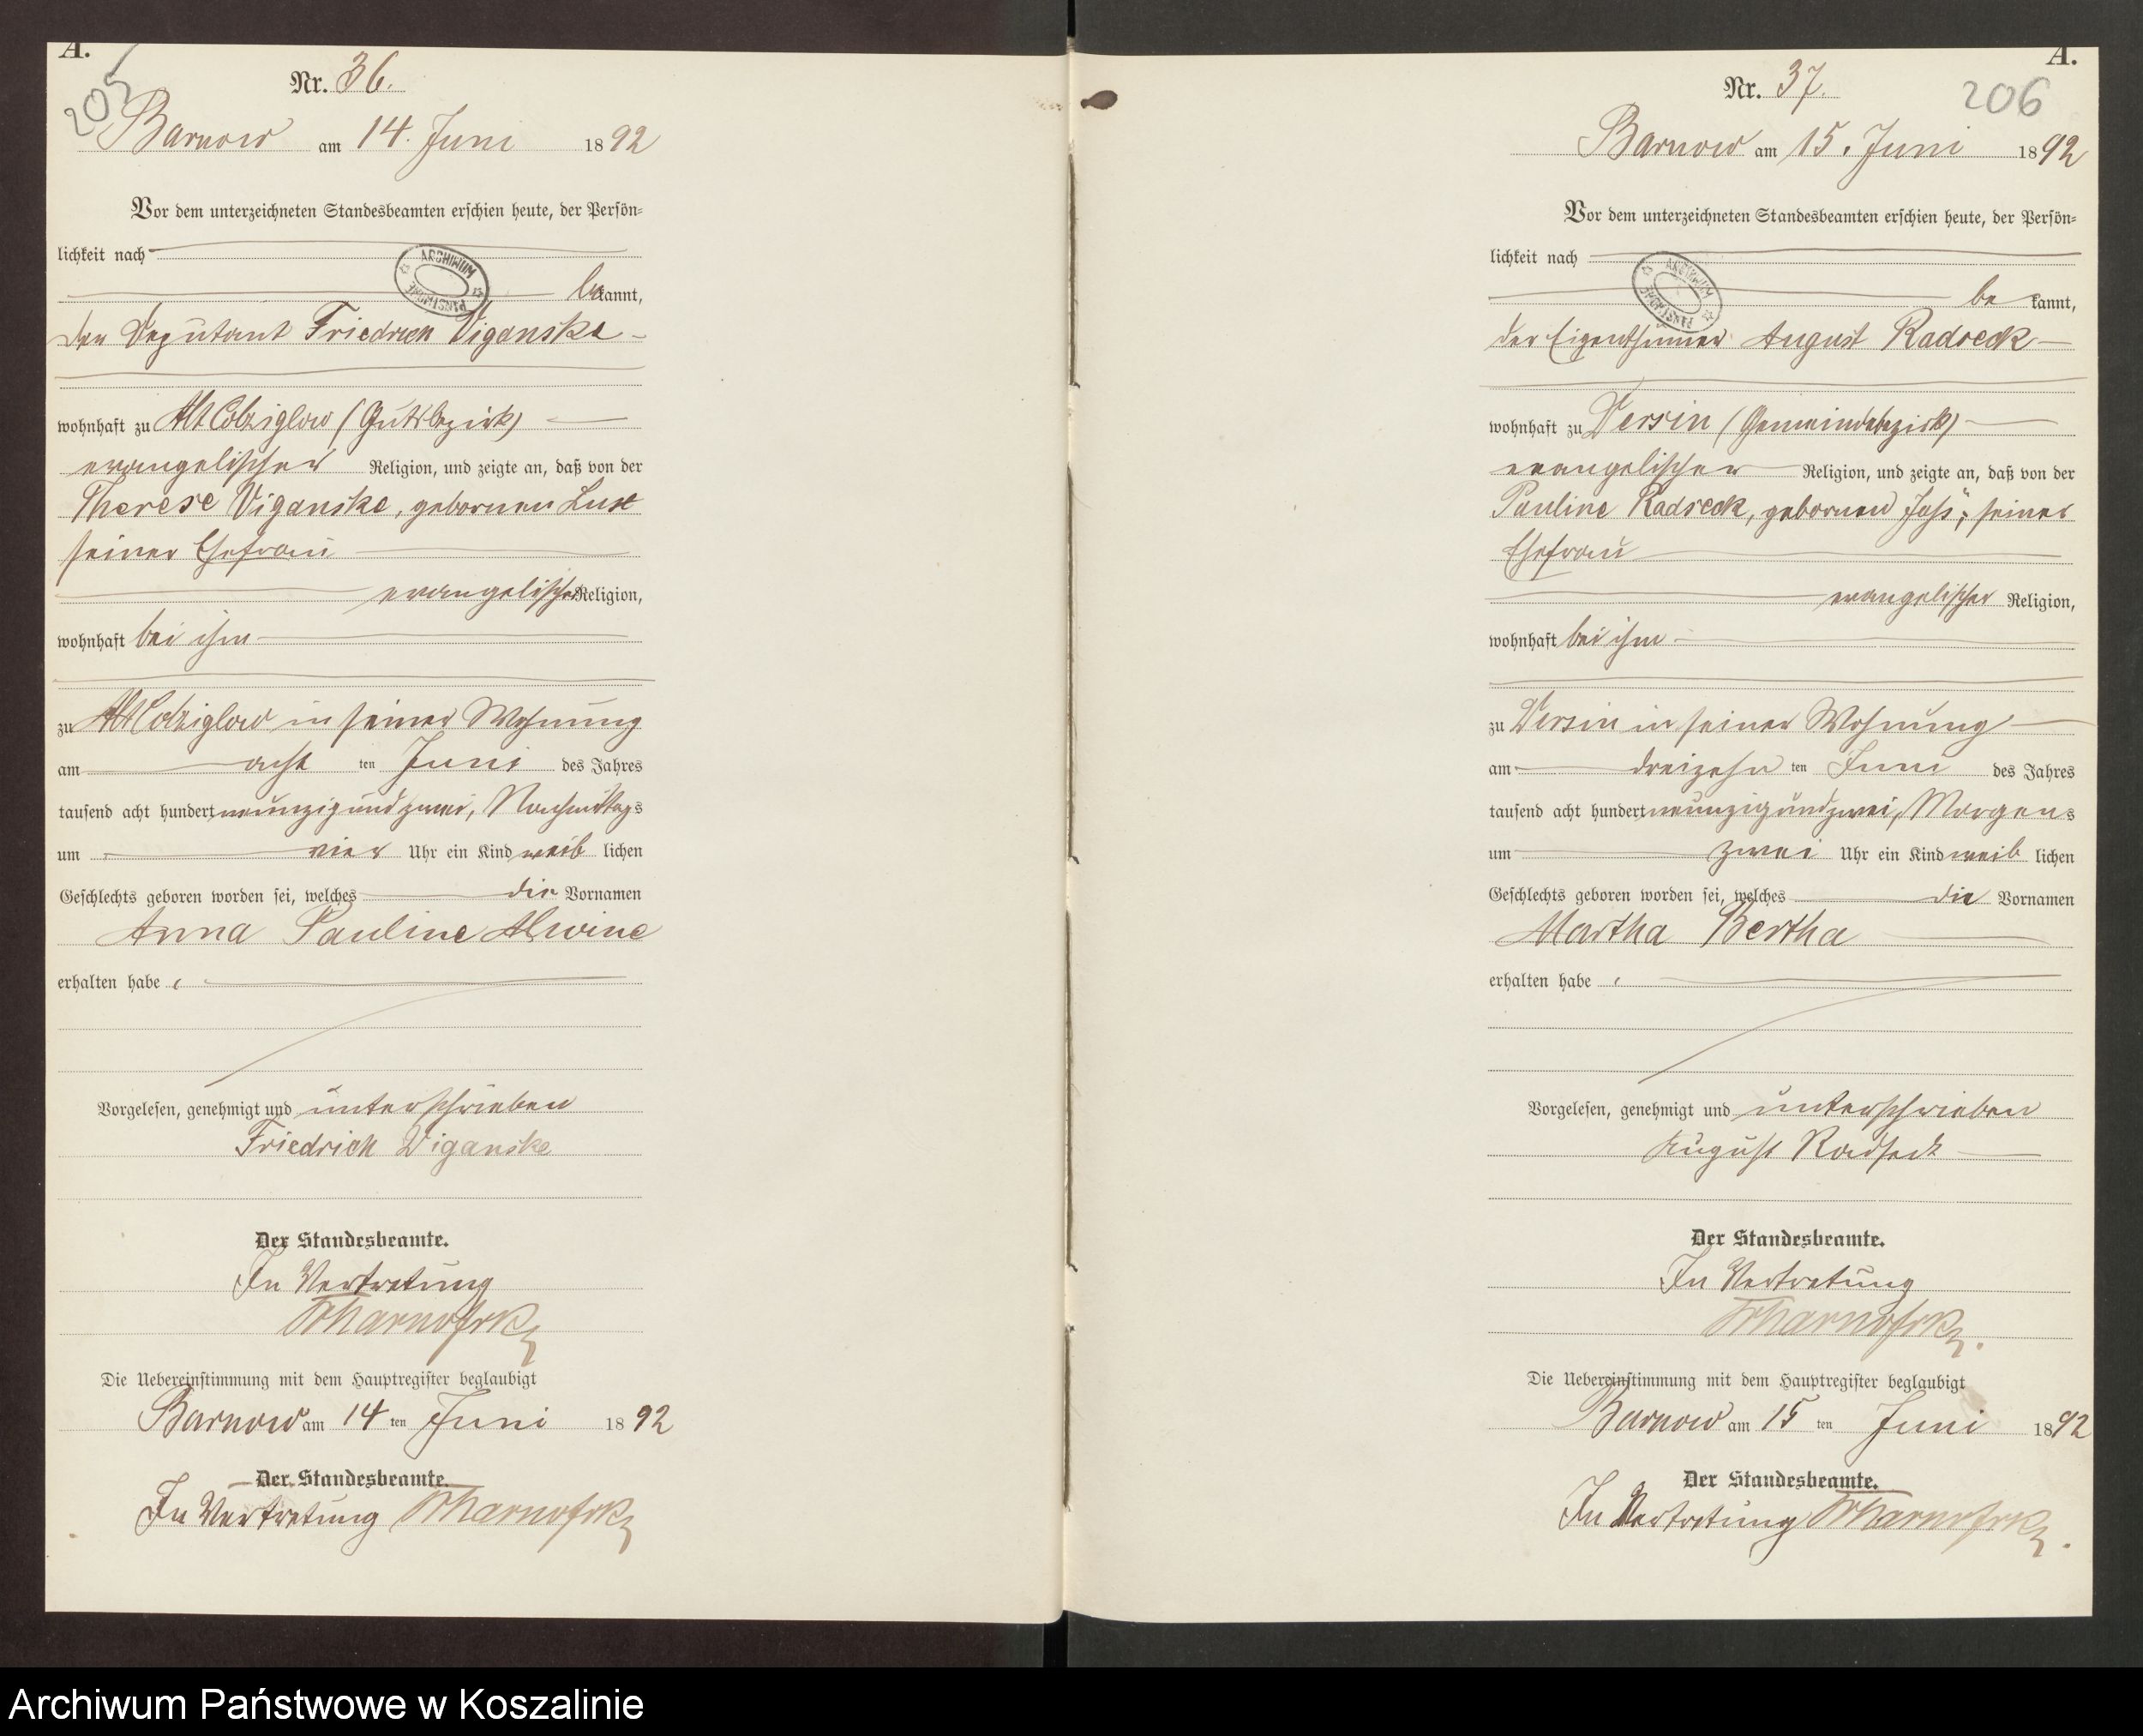 A.
205
Nr. 36.
Barnow am 14. Juni 1892
Vor dem unterzeichneten Standesbeamten erschien heute, der Persön-
lichkeit nach
bekannt,
der Deputant Friedrich Viganske
wohnhaft zu Alt Colziglow (Gutsbezirk)
evangelischer Religion, und zeigte an, daß von der
Therese Viganske, gebornen Lux
seiner Ehefrau
evangelischer Religion,
wohnhaft bei ihm
zu Alt Colziglow in seiner Wohnung
am acht ten Juni des Jahres
tausend acht hundert neunzig und zwei, Nachmittags
um vier Uhr ein Kind weib lichen
Geschlechts geboren worden sei, welches die Vornamen
Anna Pauline Alwine
erhalten habe.
Vorgelesen, genehmigt und unterschrieben
Friedrich Viganske
Der Standesbeamte.
In Vertretung
Die Uebereinstimmung mit dem Hauptregister beglaubigt
Barnow am 14 ten Juni 1892
Der Standesbeamte.
In Vertretung
A.
206
Nr. 37.
Barnow am 15. Juni 1892
Vor dem unterzeichneten Standesbeamten erschien heute, der Persön-
lichkeit nach
be kannt,
der Eigenthümer August Radseck
wohnhaft zu Versin (Gemeindebezirk)
evangelischer Religion, und zeigte an, daß von der
Pauline Radseck, gebornen Jass, seiner
Ehefrau
evangelischer Religion,
wohnhaft bei ihm
zu Versin in seiner Wohnung
am dreizehn ten Juni des Jahres
tausend acht hundert neunzig und zwei, Morgens
um zwei Uhr ein Kind weib lichen
Geschlechts geboren worden sei, welches die Vornamen
Martha Bertha
erhalten habe.
Vorgelesen, genehmigt und unterschrieben
August Radseck
Der Standesbeamte.
In Vertretung
Die Uebereinstimmung mit dem Hauptregister beglaubigt
Barnow am 15 ten Juni 1892
Der Standesbeamte.
In Vertretung
ARCHIWUM PAŃSTWOWE
ARCHIWUM PAŃSTWOWE
Archiwum Państwowe w Koszalinie